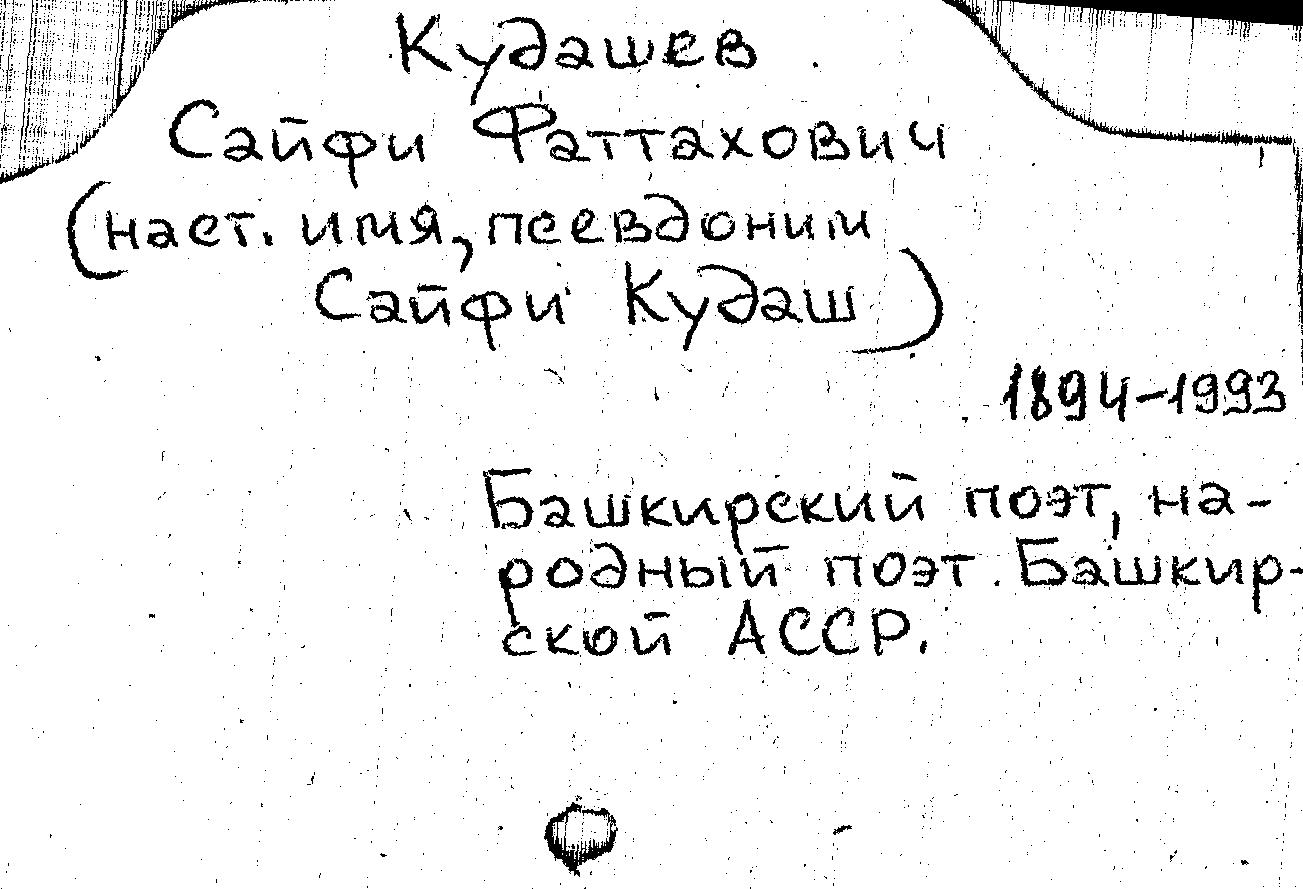 Кудашев
Сайфи Фаттахович
(наст. имя, псевдоним
Сайфи Кудаш)
1894-1993
Башкирский поэт, на-
родный поэт Башкир-
ской АССР.